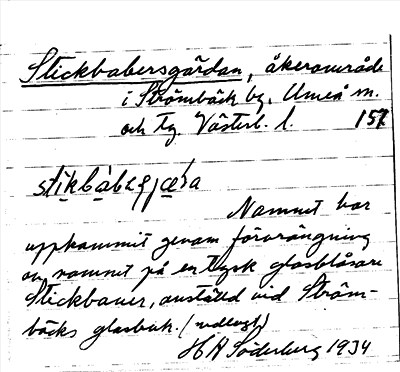 Stickbabersgärdan, åkerområde
i Strömbäck by, Umeå sn.
och tg. Västerb. l. 157
Namnet har
uppkommit genom förvrängning
av namnet på en tysk glasblåsare
Stickbauer, anställd vid Ström-
bäcks glasbruk. (nedlagt)
H A Söderberg 1934